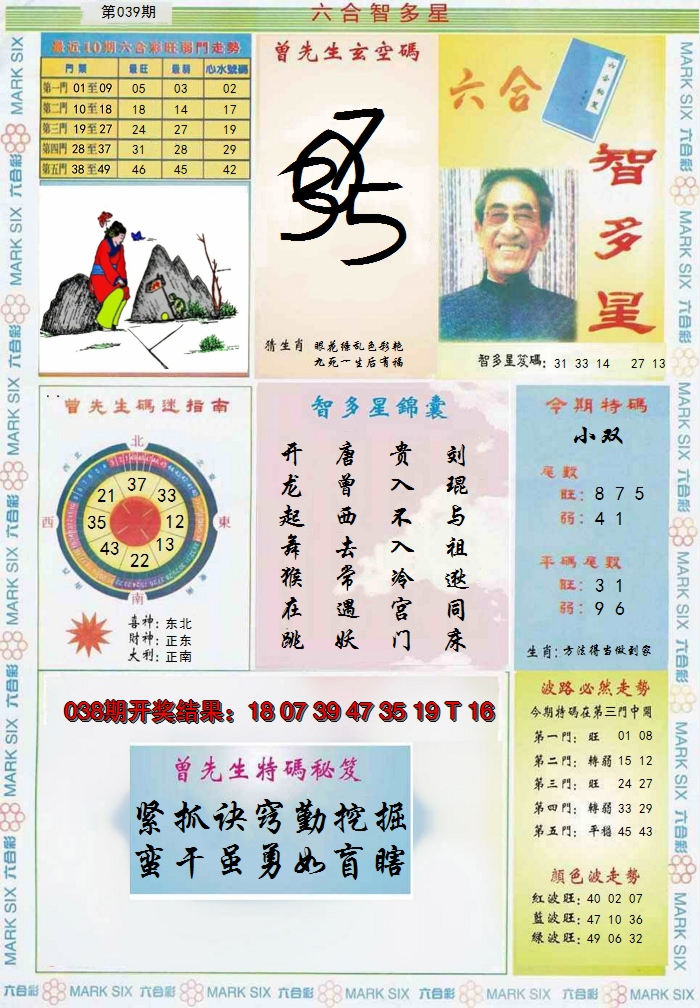 第039期
六合智多星
最近10期六合彩旺弱門走勢
門類 最旺 最弱 心水號碼
第一門 01至09 05 03 02
第二門 10至18 18 14 17
第三門 19至27 24 27 19
第四門 28至37 31 28 29
第五門 38至49 46 45 42
曾先生玄空碼
猜生肖 眼花缭乱色彩艳
九死一生后有福
六合
智多星
智多星笈碼: 31 33 14 27 13
曾先生碼迷指南
北
東
南
西
東北
西北
37
33
12
13
22
43
35
21
喜神: 东北
财神: 正东
大利: 正南
智多星錦囊
开龙起舞猴在跳
唐曾西去常遇妖
贵入不入冷宫门
刘琨与祖逖同床
今期特碼
小双
尾数
旺: 8 7 5
弱: 4 1
平碼尾数
旺: 3 1
弱: 9 6
生肖: 方法得当做到家
038期开奖结果: 18 07 39 47 35 19 T 16
曾先生特碼秘笈
紧抓诀窍勤挖掘
蛮干虽勇如盲瞎
波路必然走勢
今期特碼在第三門中開
第一門: 旺 01 08
第二門: 轉弱 15 12
第三門: 旺 24 27
第四門: 轉弱 33 29
第五門: 平穩 45 43
顏色波走勢
红波旺: 40 02 07
藍波旺: 47 10 36
绿波旺: 49 06 32
MARK SIX 六合彩